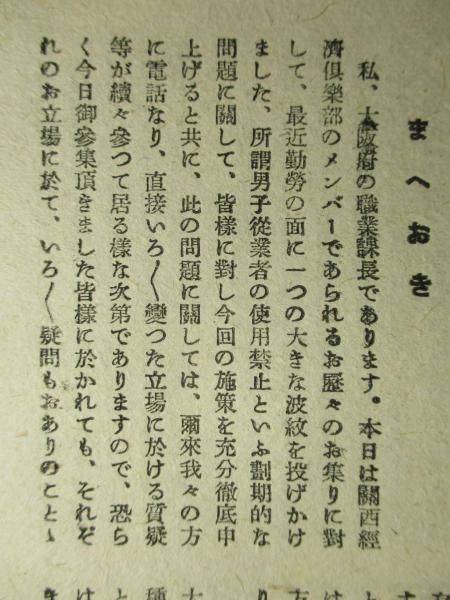 まへおき
私、大阪府の職業課長であります。本日は關西經
濟俱樂部のメンバーであられるお歷々のお集りに對
して、最近勤勞の面に一つの大きな波紋を投げかけ
ました、所謂男子從業者の使用禁止といふ劃期的な
問題に關して、皆樣に對し今回の施策を充分徹底中
上げると共に、此の問題に關しては、爾來我々の方
に電話なり、直接いろ〱變つた立場に於ける質疑
等が續々參つて居る樣な次第でありますので、恐ら
く今日御參集頂きました皆樣に於かれても、それぞ
れのお立場に於て、いろ〱疑問もおありのことゝ